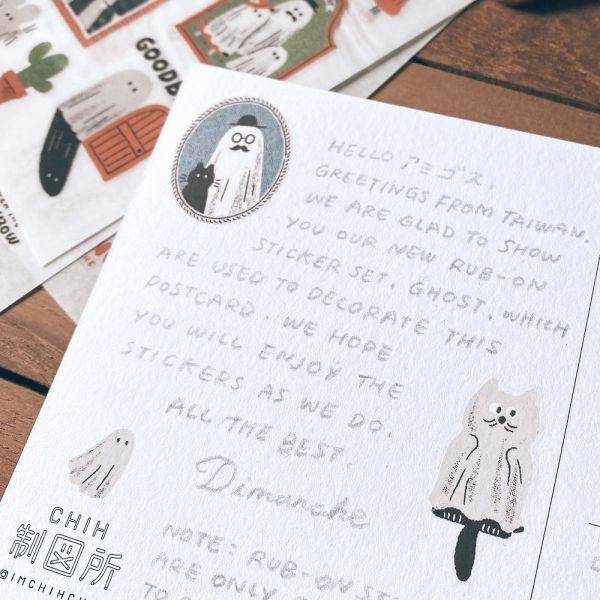 GOODB
HELLO アミゴス,
GREETINGS FROM TAIWAN.
WE ARE GLAD TO SHOW
YOU OUR NEW RUB-ON
STICKER SET, GHOST, WHICH
ARE USED TO DECORATE THIS
POSTCARD. WE HOPE
YOU WILL ENJOY THE
STICKERS AS WE DO.
ALL THE BEST,
Dimanche
NOTE: RUB-ON
ARE ONLY
CHIH
制図所
@IMCHIHCH